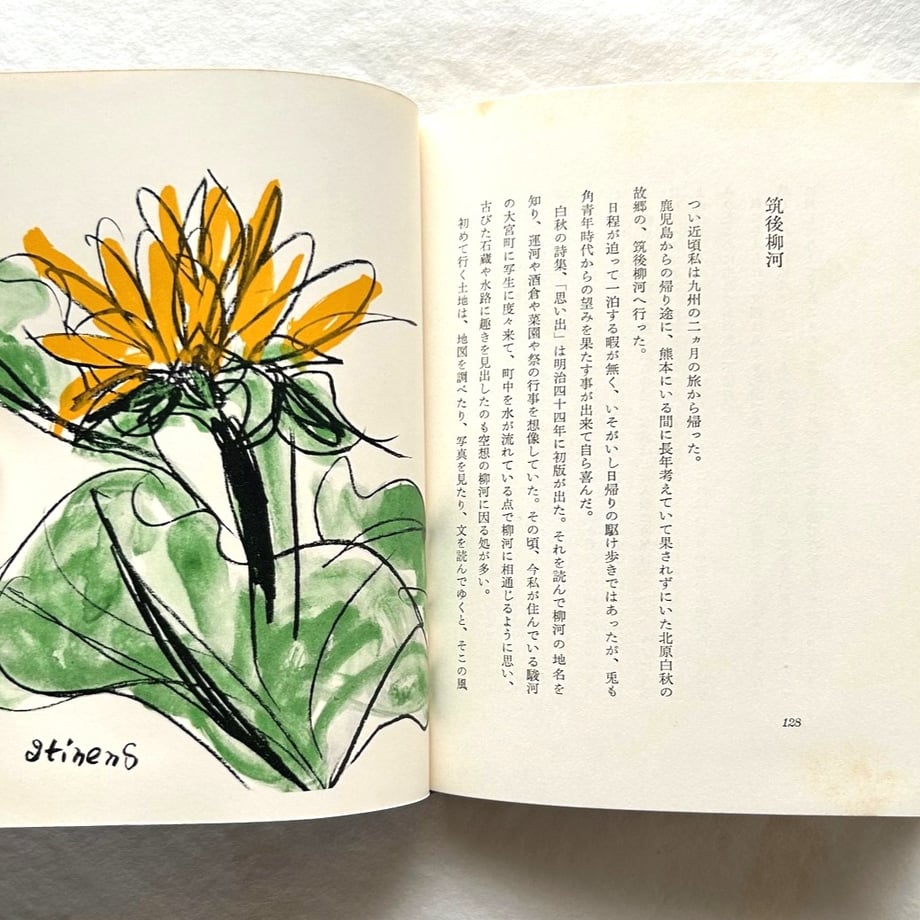 筑後柳河
つい近頃私は九州の二ヵ月の旅から帰った。
鹿児島からの帰り途に、熊本にいる間に長年考えていて果されずにいた北原白秋の
故郷の、筑後柳河へ行った。
日程が迫って一泊する暇が無く、いそがいし日帰りの駆け歩きではあったが、兎も
角青年時代からの望みを果たす事が出来て自ら喜んだ。
白秋の詩集、「思い出」は明治四十四年に初版が出た。それを読んで柳河の地名を
知り、運河や酒倉や菜園や祭の行事を想像していた。その頃、今私が住んでいる駿河
の大宮町に写生に度々来て、町中を水が流れている点で柳河に相通じるように思い、
古びた石蔵や水路に趣きを見出したのも空想の柳河に因る処が多い。
初めて行く土地は、地図を調べたり、写真を見たり、文を読んでゆくと、そこの風
128